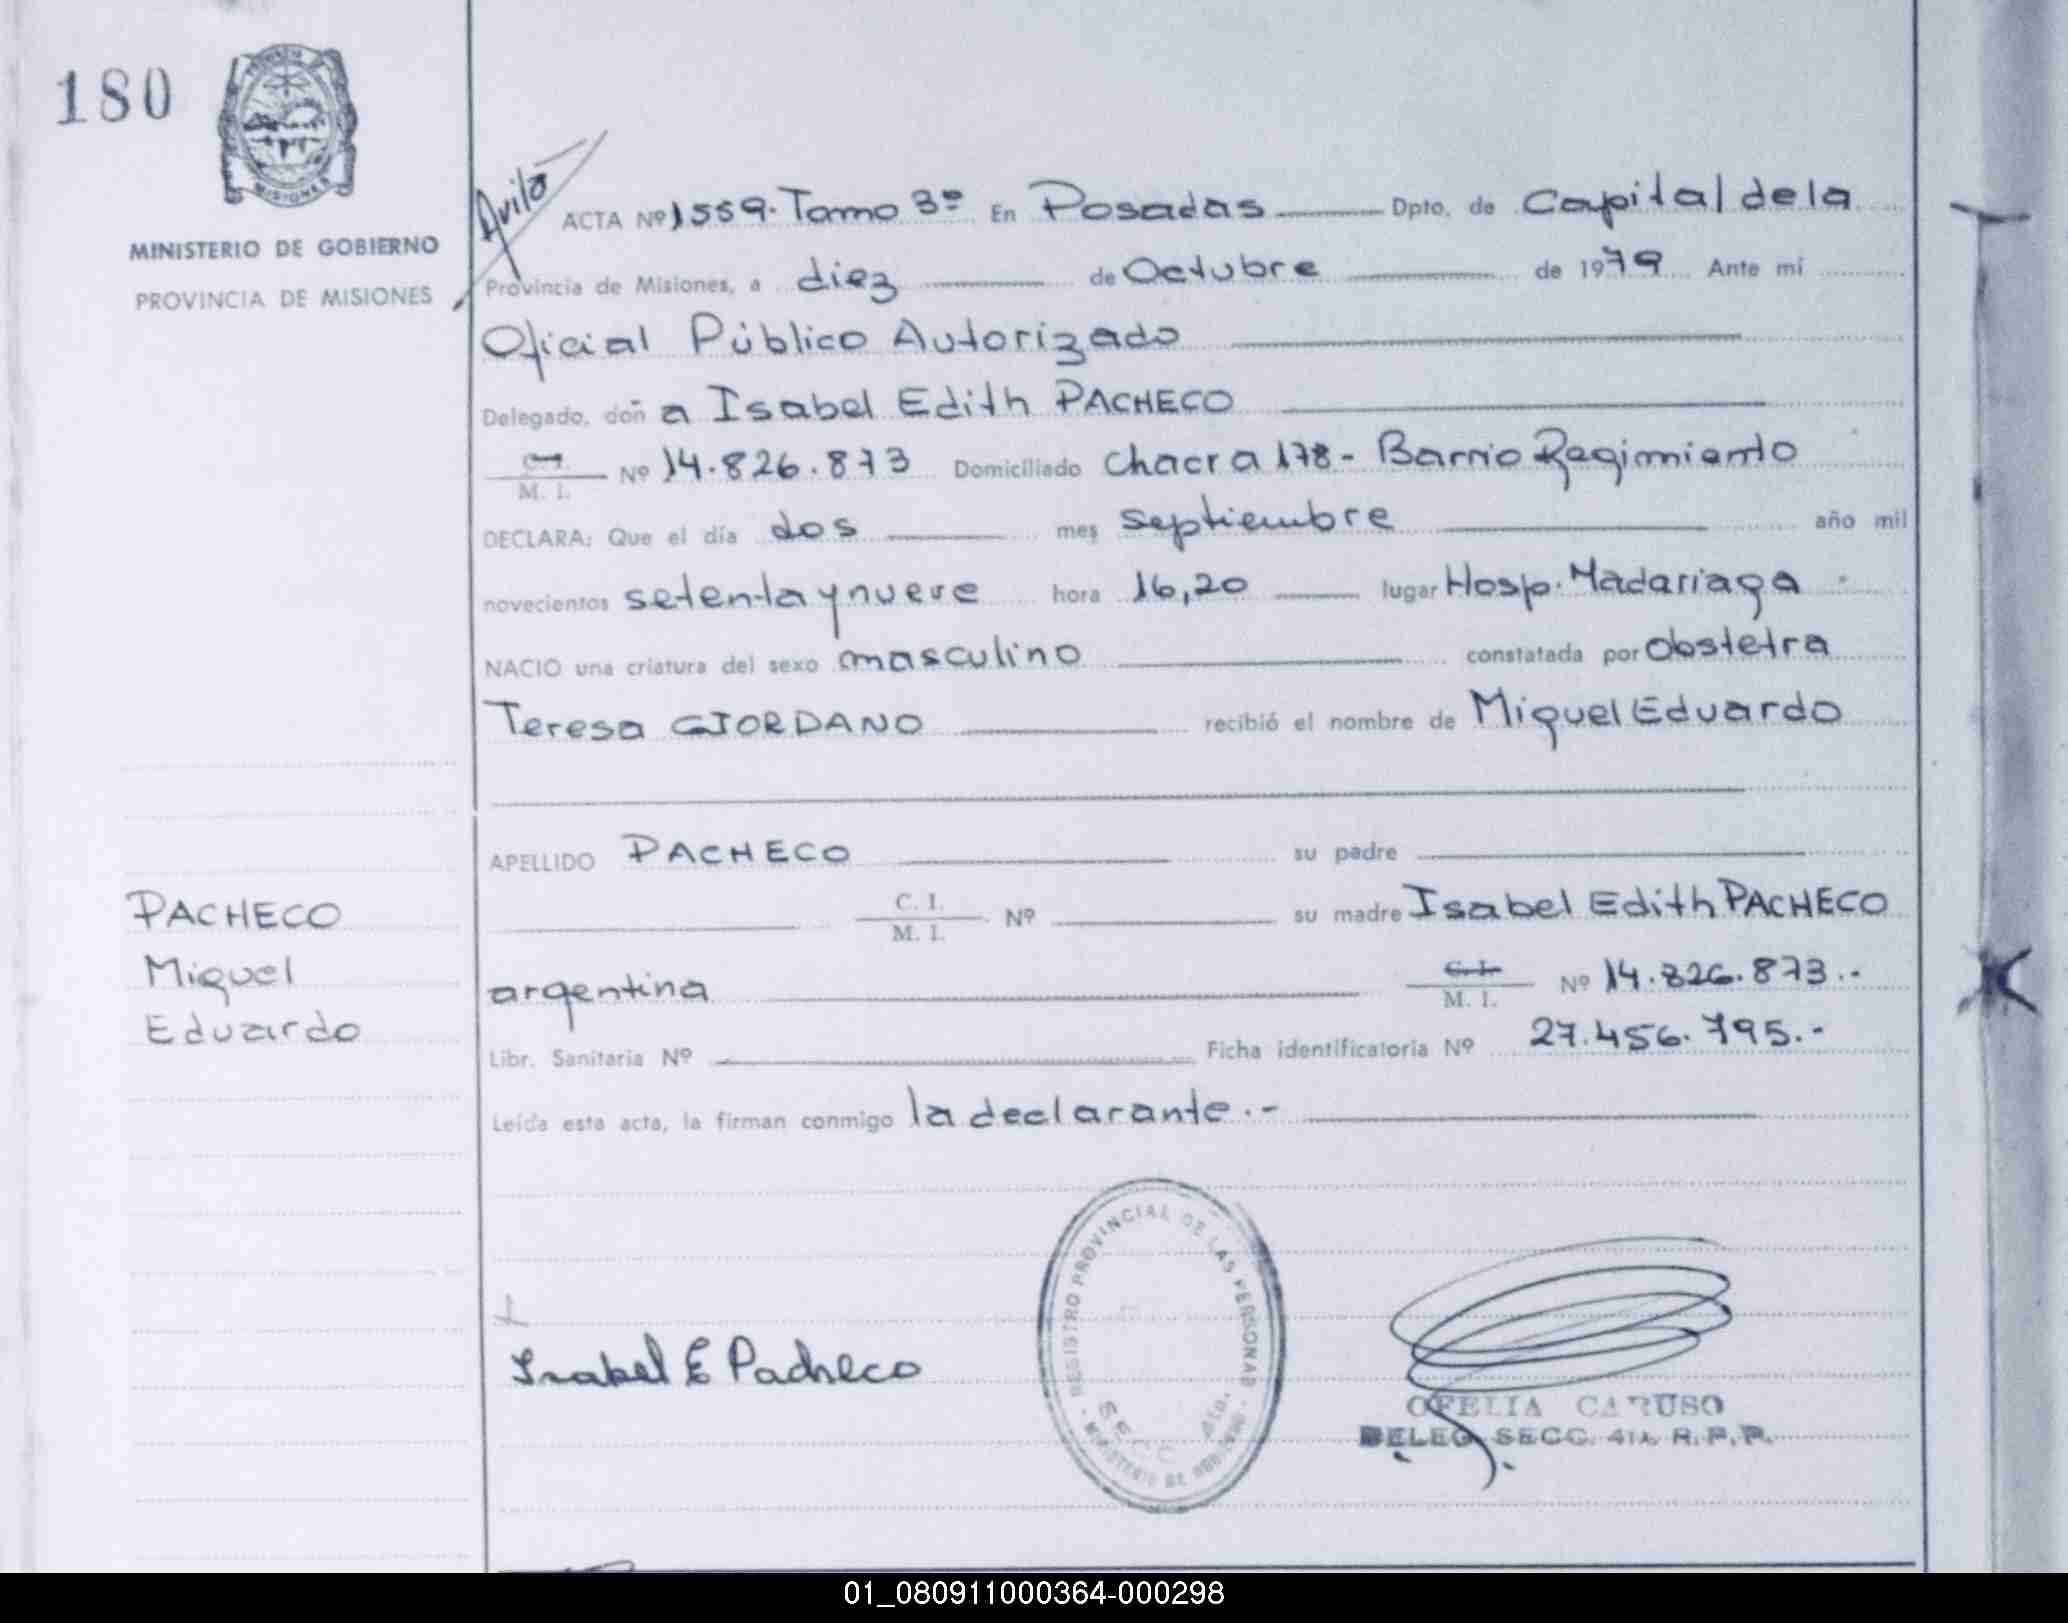 180
PROVINCIA
MISIONES
MINISTERIO DE GOBIERNO
PROVINCIA DE MISIONES
Avila
ACTA Nº 1559. Tomo 3º En Posadas Dpto. de Capital de la
Provincia de Misiones, a diez de Octubre de 1979 Ante mi
Oficial Público Autorizado
Delegado, doñ a Isabel Edith PACHECO
C. I.
M. I.
Nº 14.826.873 Domiciliado Chacra 178 - Barrio Regimiento
DECLARA: Que el día dos mes septiembre año mil
novecientos setenta y nueve hora 16,20 lugar Hosp. Madariaga
NACIO una criatura del sexo masculino constatada por obstetra
Teresa GIORDANO recibió el nombre de Miguel Eduardo
APELLIDO PACHECO su padre
C. I.
M. I.
Nº su madre Isabel Edith PACHECO
argentina C. I.
M. I.
Nº 14.826.873.-
Libr. Sanitaria Nº Ficha identificatoria Nº 27.456.795.-
Leída esta acta, la firman conmigo la declarante.-
PACHECO
Miguel
Eduardo
Isabel E Pacheco
REGISTRO PROVINCIAL DE LAS PERSONAS
MINISTERIO DE GOBIERNO
OFELIA CARUSO
DELEG. SECC. 4ta. R.P.P.
01_080911000364-000298